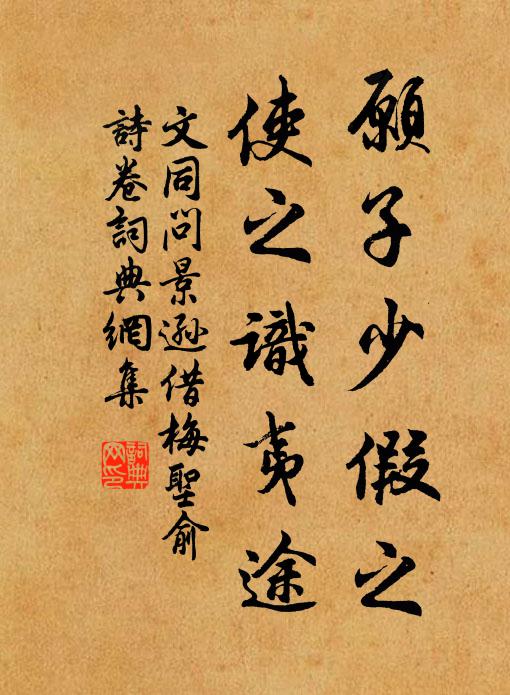 願子少假之
使之識夷途
文同問景遜借梅聖俞
詩卷詞典網集
詞典
网印